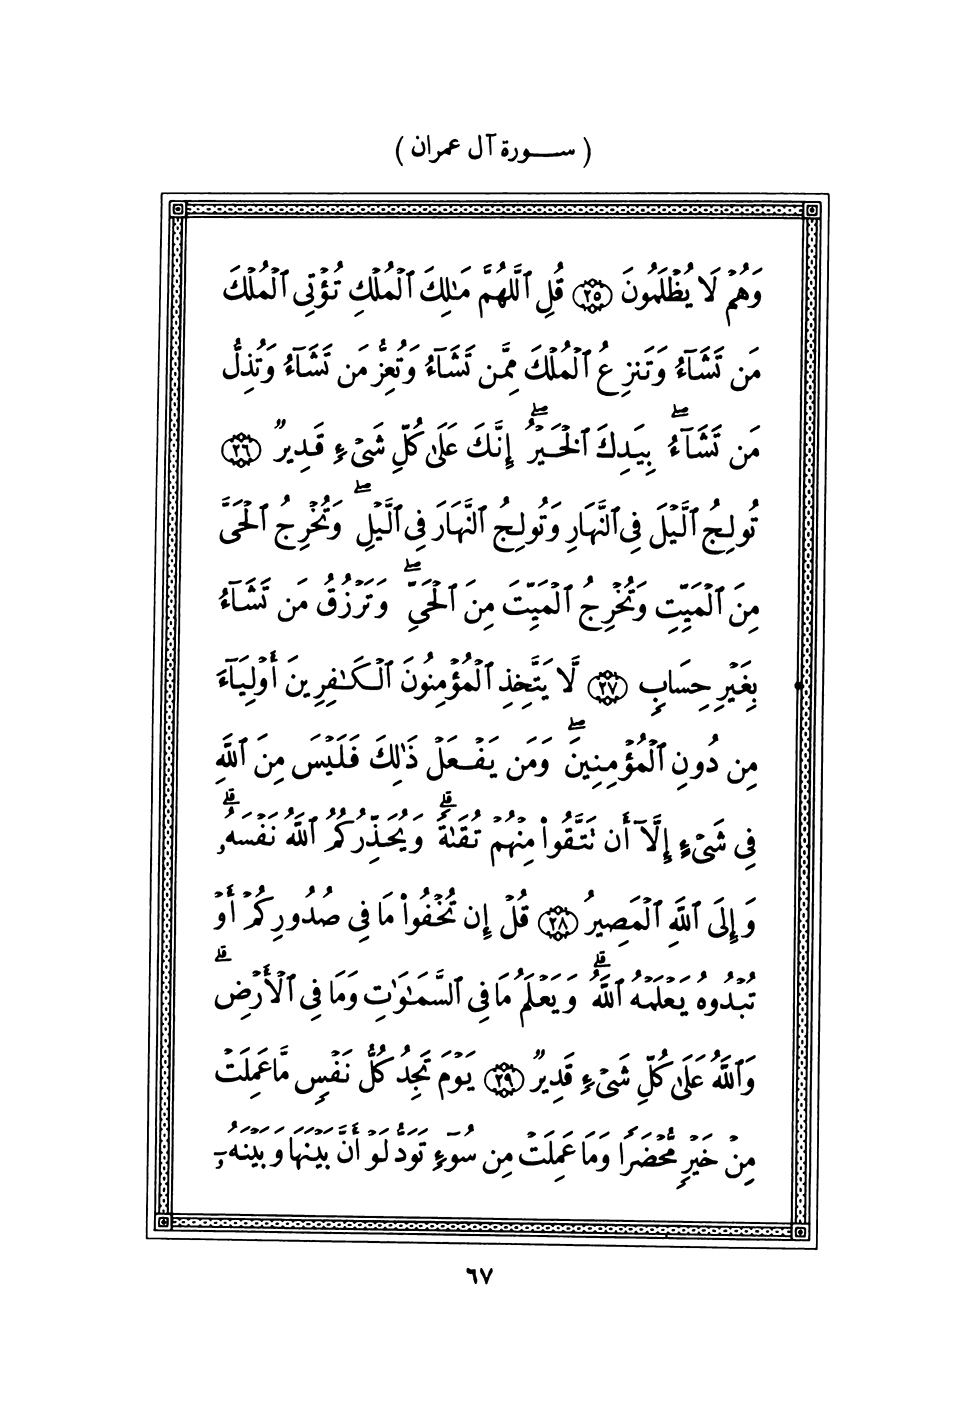 ( سورة آل عمران )
وَهُمۡ لَا يُظۡلَمُونَ ٢٥ قُلِ ٱللَّهُمَّ مَٰلِكَ ٱلۡمُلۡكِ تُؤۡتِي ٱلۡمُلۡكَ
مَن تَشَآءُ وَتَنزِعُ ٱلۡمُلۡكَ مِمَّن تَشَآءُ وَتُعِزُّ مَن تَشَآءُ وَتُذِلُّ
مَن تَشَآءُۖ بِيَدِكَ ٱلۡخَيۡرُۖ إِنَّكَ عَلَىٰ كُلِّ شَيۡءٖ قَدِيرٞ ٢٦
تُولِجُ ٱلَّيۡلَ فِي ٱلنَّهَارِ وَتُولِجُ ٱلنَّهَارَ فِي ٱلَّيۡلِۖ وَتُخۡرِجُ ٱلۡحَيَّ
مِنَ ٱلۡمَيِّتِ وَتُخۡرِجُ ٱلۡمَيِّتَ مِنَ ٱلۡحَيِّۖ وَتَرۡزُقُ مَن تَشَآءُ
بِغَيۡرِ حِسَابٖ ٢٧ لَّا يَتَّخِذِ ٱلۡمُؤۡمِنُونَ ٱلۡكَٰفِرِينَ أَوۡلِيَآءَ
مِن دُونِ ٱلۡمُؤۡمِنِينَۖ وَمَن يَفۡعَلۡ ذَٰلِكَ فَلَيۡسَ مِنَ ٱللَّهِ
فِي شَيۡءٍ إِلَّآ أَن تَتَّقُواْ مِنۡهُمۡ تُقَىٰةٗۗ وَيُحَذِّرُكُمُ ٱللَّهُ نَفۡسَهُۥۗ
وَإِلَى ٱللَّهِ ٱلۡمَصِيرُ ٢٨ قُلۡ إِن تُخۡفُواْ مَا فِي صُدُورِكُمۡ أَوۡ
تُبۡدُوهُ يَعۡلَمۡهُ ٱللَّهُۗ وَيَعۡلَمُ مَا فِي ٱلسَّمَٰوَٰتِ وَمَا فِي ٱلۡأَرۡضِۗ
وَٱللَّهُ عَلَىٰ كُلِّ شَيۡءٖ قَدِيرٞ ٢٩ يَوۡمَ تَجِدُ كُلُّ نَفۡسٖ مَّا عَمِلَتۡ
مِنۡ خَيۡرٖ مُّحۡضَرٗا وَمَا عَمِلَتۡ مِن سُوٓءٖ تَوَدُّ لَوۡ أَنَّ بَيۡنَهَا وَبَيۡنَهُۥٓ
٦٧